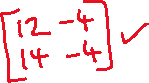 [12 -4
14 -4] ✓